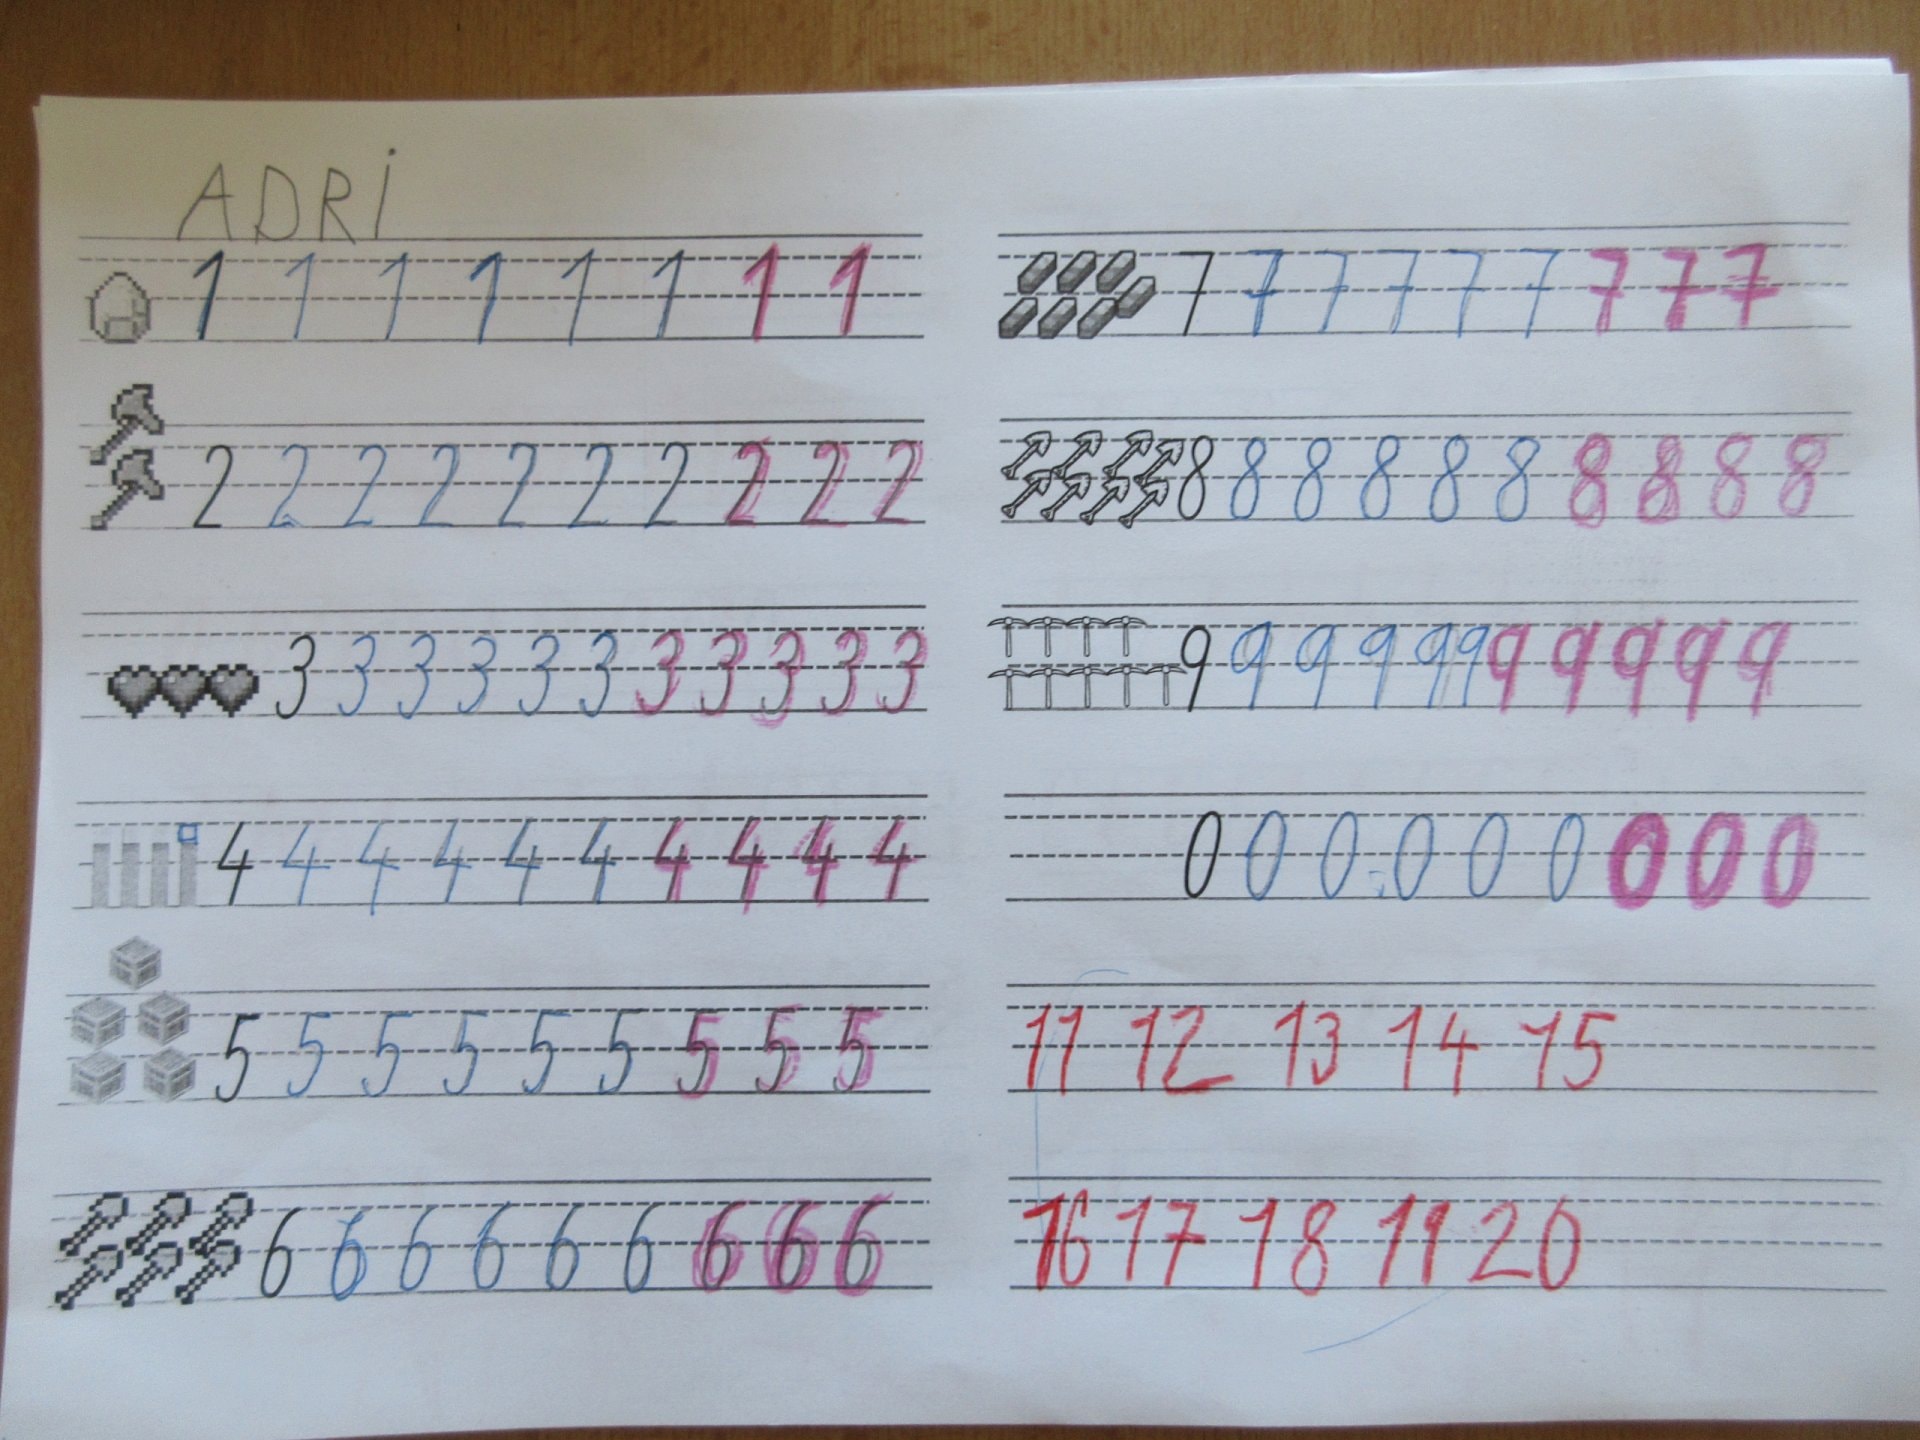 ADRI
1 1 1 1 1 1 1 1
2 2 2 2 2 2 2 2 2 2
3 3 3 3 3 3 3 3 3 3 3
4 4 4 4 4 4 4 4 4 4
5 5 5 5 5 5 5 5 5
6 6 6 6 6 6 6 6 6
7 7 7 7 7 7 7 7 7
8 8 8 8 8 8 8 8 8 8
9 9 9 9 9 9 9 9 9 9 9
0 0 0 0 0 0 0 0 0
11 12 13 14 15
16 17 18 19 20